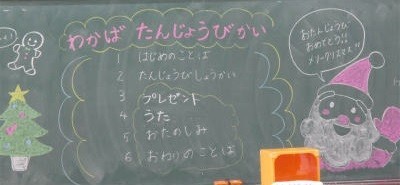 わかば たんじょうびかい
1 はじめのことば
2 たんじょうびしょうかい
3 プレゼント
4 うた
5 おたのしみ
6 おわりのことば
おたんじょうび
おめでとう!!
メリークリスマス